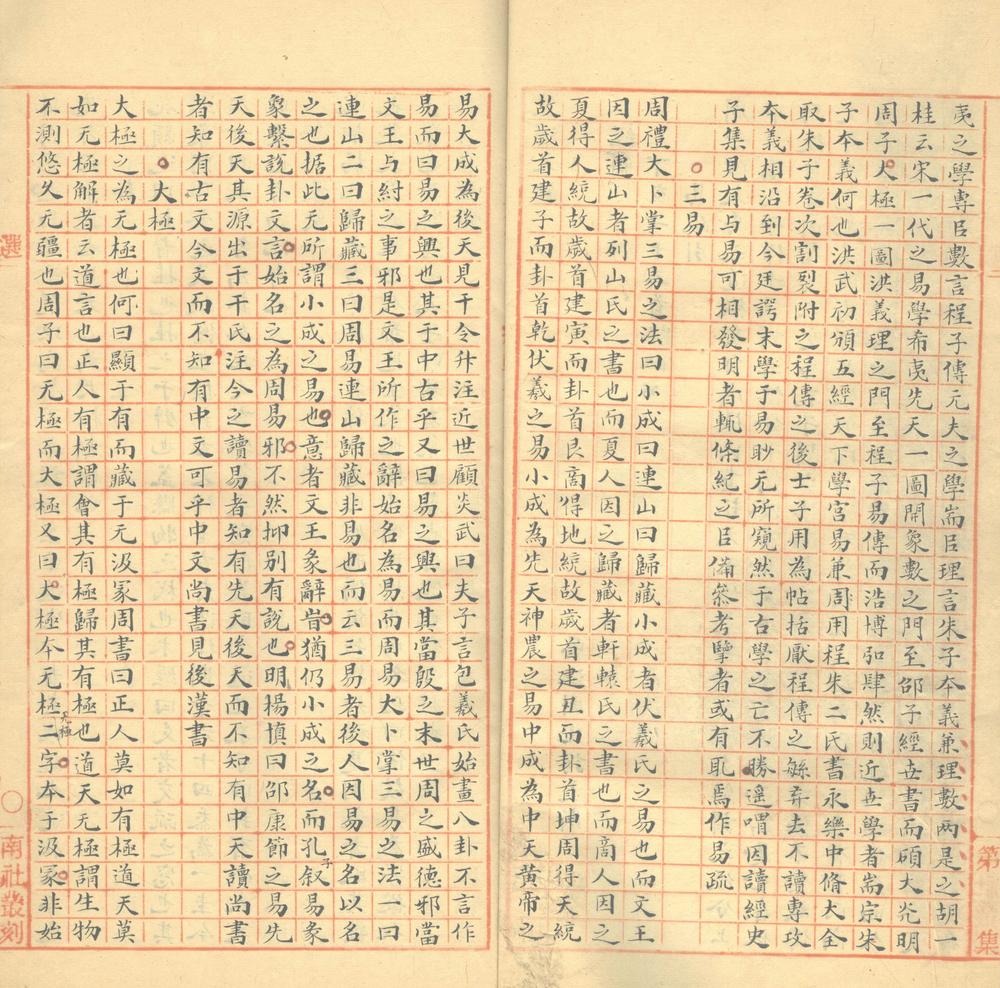 夷之學專臣數言程子傳元夫之學耑臣理言朱子本義兼理數两是之胡一
桂云宋一代之易學希夷先天一圖開象數之門至邵子經世書而碩大光明
周子太極一圖洪義理之門至程子易傳而浩博弘肆然則近世學者耑宗朱
子本義何也洪武初頒五經天下學宮易兼用程朱二氏書永樂中脩大全
取朱子卷次割裂附之程傳之後士子用為帖括厭程傳之緐弃去不讀專攻
本義相沿到今廷諤末學于易眇无所窺然于古學之亡不勝遥喟因讀經史
子集見有与易可相發明者輒條紀之臣備叅考擥者或有取焉作易疏
三易
周禮大卜掌三易之法曰小成曰連山曰歸藏小成者伏羲氏之易也而文王
因之連山者列山氏之書也而夏人因之歸藏者軒轅氏之書也而商人因之
夏得人統故歲首建寅而卦首艮商得地統故歲首建丑而卦首坤周得天統
故歲首建子而卦首乾伏羲之易小成為先天神農之易中成為中天黄帝之
易大成為後天見干令升注近世顧炎武曰夫子言包羲氏始畫八卦不言作
易而曰易之興也其于中古乎又曰易之興也其當殷之末世周之盛德邪當
文王与紂之事邪是文王所作之辭始名為易而周易大卜掌三易之法一曰
連山二曰歸藏三曰周易連山歸藏非易也而云三易者後人因易之名以名
之也据此无所謂小成之易也意者文王彖辭旹猶仍小成之名而孔子叙易彖
象繫說卦文言始名之為周易邪不然抑别有說也明楊慎曰邵康節之易先
天後天其源出于干氏注今之讀易者知有先天後天而不知有中天讀尚書
者知有古文今文而不知有中文可乎中文尚書見後漢書
大極
大極之為无極也何曰顯于有而藏于无汲冢周書曰正人莫如有極道天莫
如无極解者云道言也正人有極謂會其有極歸其有極也道天无極謂生物
不測悠久无疆也周子曰无極而大極又曰大極本无極无極二字本于汲冢非始
選
南社叢刻
第
集